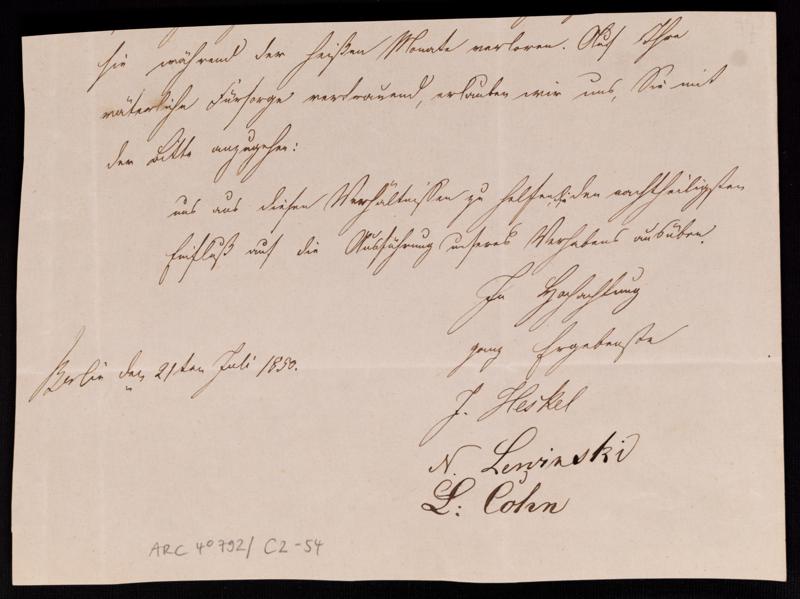 sie während der heißen Monate verloren. Auf Ihre
väterliche Fürsorge vertrauend, erlauben wir uns, Sie mit
der Bitte anzugehen:
uns aus diesen Verhältnissen zu helfen, die den nachtheiligsten
Einfluß auf die Ausführung unseres Vorhabens ausüben.
In Hochachtung
ganz Ergebenste
Berlin den 21ten Juli 1850.
J. Heskel
N. Lewinski
L: Cohn
ARC 4° 792/ C2-54